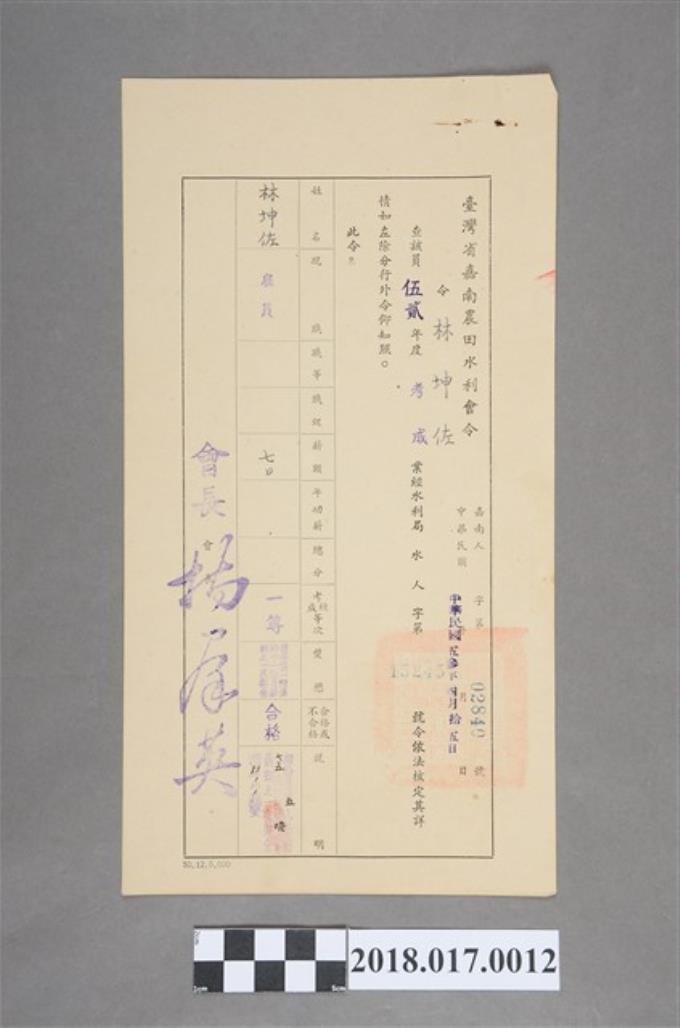 臺灣省嘉南農田水利會令
嘉南人 字第 02840 號
中華民國 年 月 日
中華民國五參年四月拾五日
令 林坤佐
查該員 伍貳 年度 考成 業經水利局 水人 字第 15245 號令依法核定其詳
情如左除分行外令仰知照。
此令。
姓名
現職
職等
職級
薪額
年功薪
總分
考成等次
獎懲
合格或不合格
說明
林坤佐
雇員
七〇
一等
合格
會長 楊群英
50.12.5,000
2018.017.0012
0cm
5cm